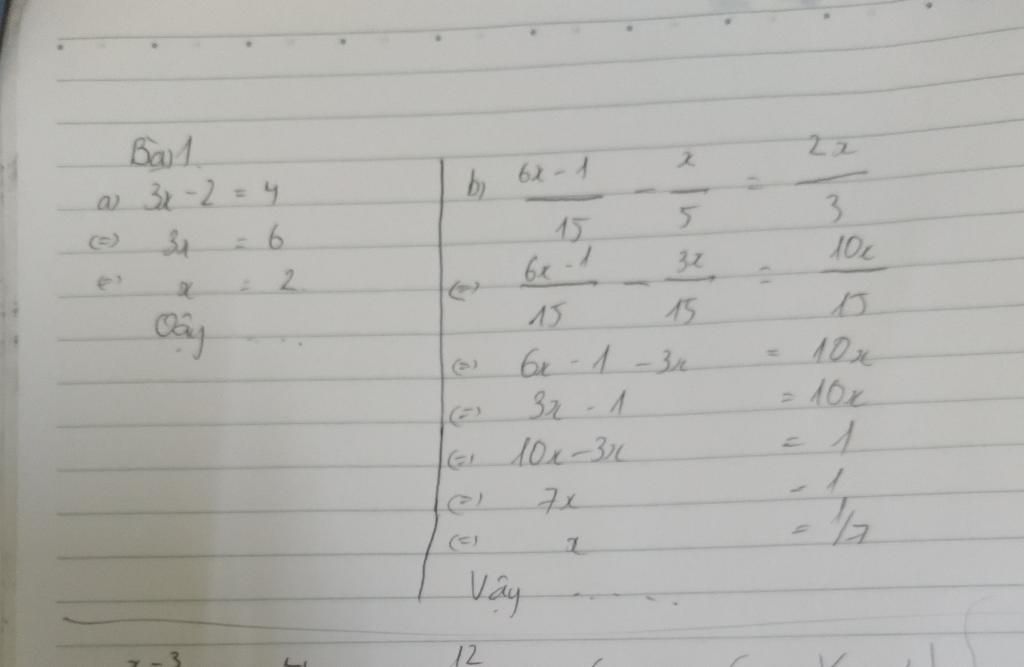 Bài 1
a) 3x - 2 = 4
(=) 3x = 6
(=) x = 2
Vậy ....
b) (6x - 1)/15 - x/5 = 2x/3
(=) (6x - 1)/15 - 3x/15 = 10x/15
(=) 6x - 1 - 3x = 10x
(=) 3x - 1 = 10x
(=) 10x - 3x = 1
(=) 7x = 1
(=) x = 1/7
Vậy ......
x - 3 12